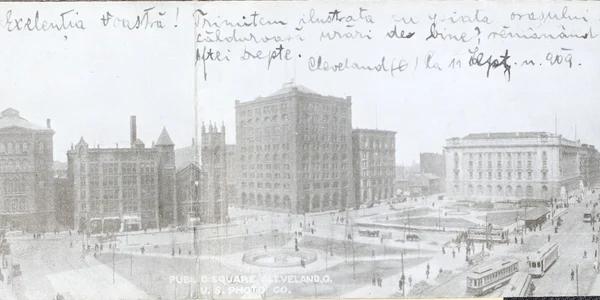 Exelenția Voastră! Trimitem ilustrata cu piața orașului
călduroasă urări de bine? rămânând
Cleveland (O) la 11 Sept. n. 909.
PUBLIC SQUARE, CLEVELAND, O.
U. S. PHOTO CO.